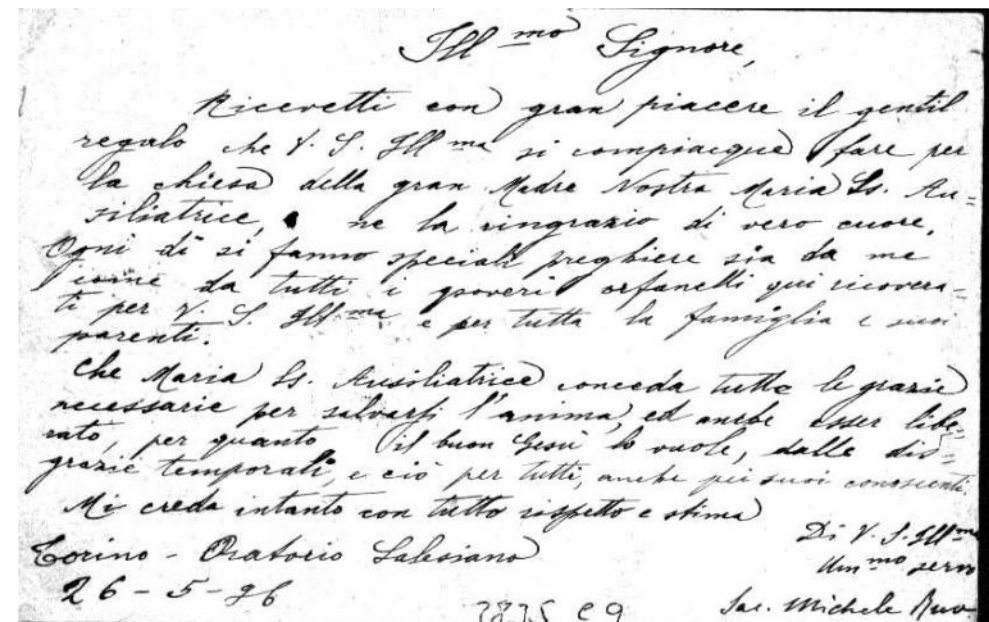 Ill mo Signore,
Ricevetti con gran piacere il gentil
regalo che V. S. Ill ma si compiacque fare per
la chiesa della gran Madre Nostra Maria Ss. Au=
siliatrice, ne la ringrazio di vero cuore.
Ogni dì si fanno speciali preghiere sia da me
come da tutti i poveri orfanelli qui ricovera-
ti per V. S. Ill ma e per tutta la famiglia e suoi
parenti.
Che Maria Ss. Ausiliatrice conceda tutte le grazie
necessarie per salvarsi l'anima, ed anche esser libe=
rato, per quanto il buon Gesù lo vuole, dalle dis=
grazie temporali, e ciò per tutti, anche pei suoi conoscenti.
Mi creda intanto con tutto rispetto e stima
Di V. S. Ill ma
Torino - Oratorio Salesiano
Um mo servo
26-5-96
Sac. Michele Rua